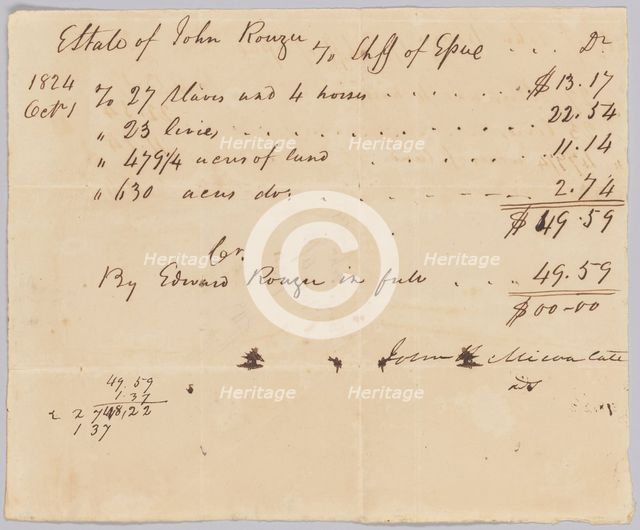 Estate of John Rouzee To Shff of Essex . . . Dr
1824
Oct 1
To 27 slaves and 4 horses . . . . . . $13.17
" 23 levies . . . . . . . . . . . 22.54
" 479 1/4 acres of land . . . . . . 11.14
" 630 acres do. . . . - - - - 2.74
$49.59
Cr.
By Edward Rouzee in full . . . 49.59
$00-00
John Micou late
49.59
1.37
48,22
1 37
Heritage Heritage
Heritage Heritage
Heritage Heritage
Heritage Heritage
©